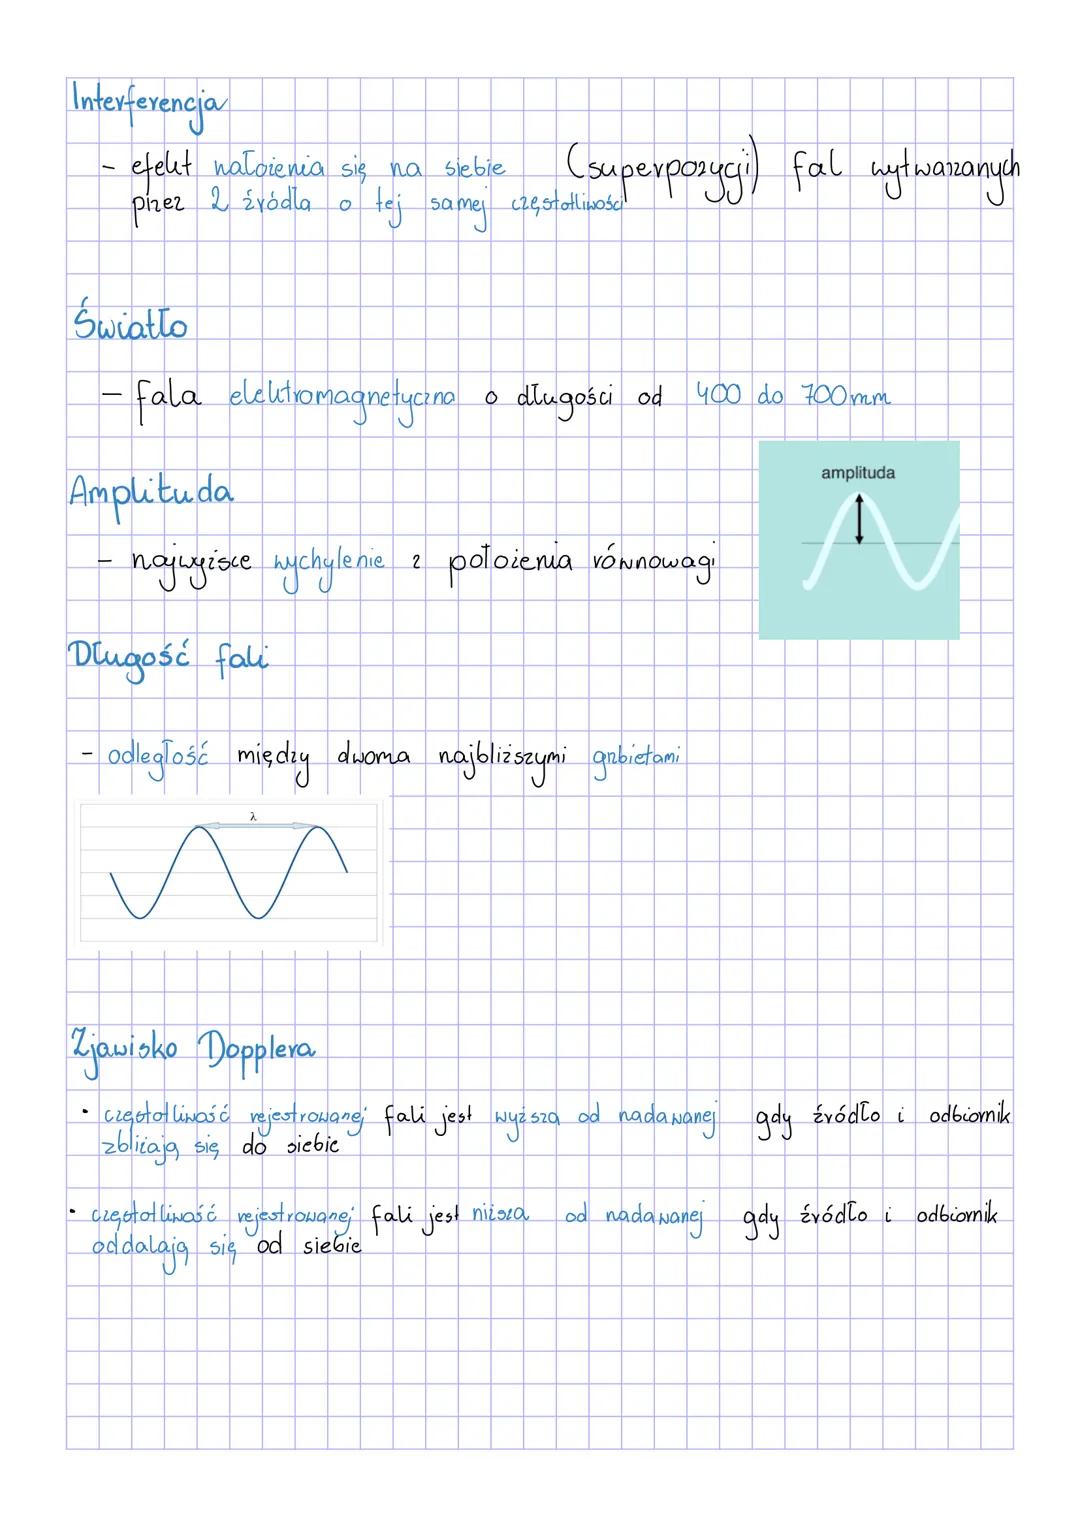 Interferencja
- efekt nałożenia się na siebie (superpozycji) fal wytwarzanych
przez 2 źródła o tej samej częstotliwości
Światło
- fala elektromagnetyczna o długości od 400 do 700mm
amplituda
Amplituda
- najwyższe wychylenie z położenia równowagi
Długość fali
- odległość między dwoma najbliższymi grzbietami
λ
Zjawisko Dopplera
• częstotliwość rejestrowanej fali jest wyższa od nadawanej gdy źródło i odbiornik
zbliżają się do siebie
• częstotliwość rejestrowanej fali jest niższa od nadawanej gdy źródło i odbiornik
oddalają się od siebie